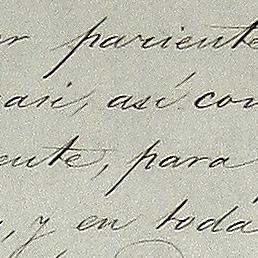 r pariente
asi, así con
ente, para
, y en toda